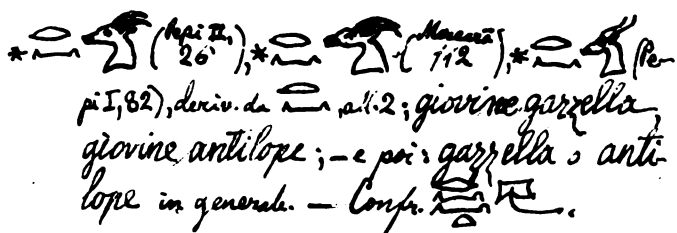 * (Pepi II, 26), * (Merenrā 112), * (Pe-
pi I, 82), deriv. da ; giovine gazzella,
giovine antilope; – e poi: gazzella o anti-
lope in generale. – Confr.